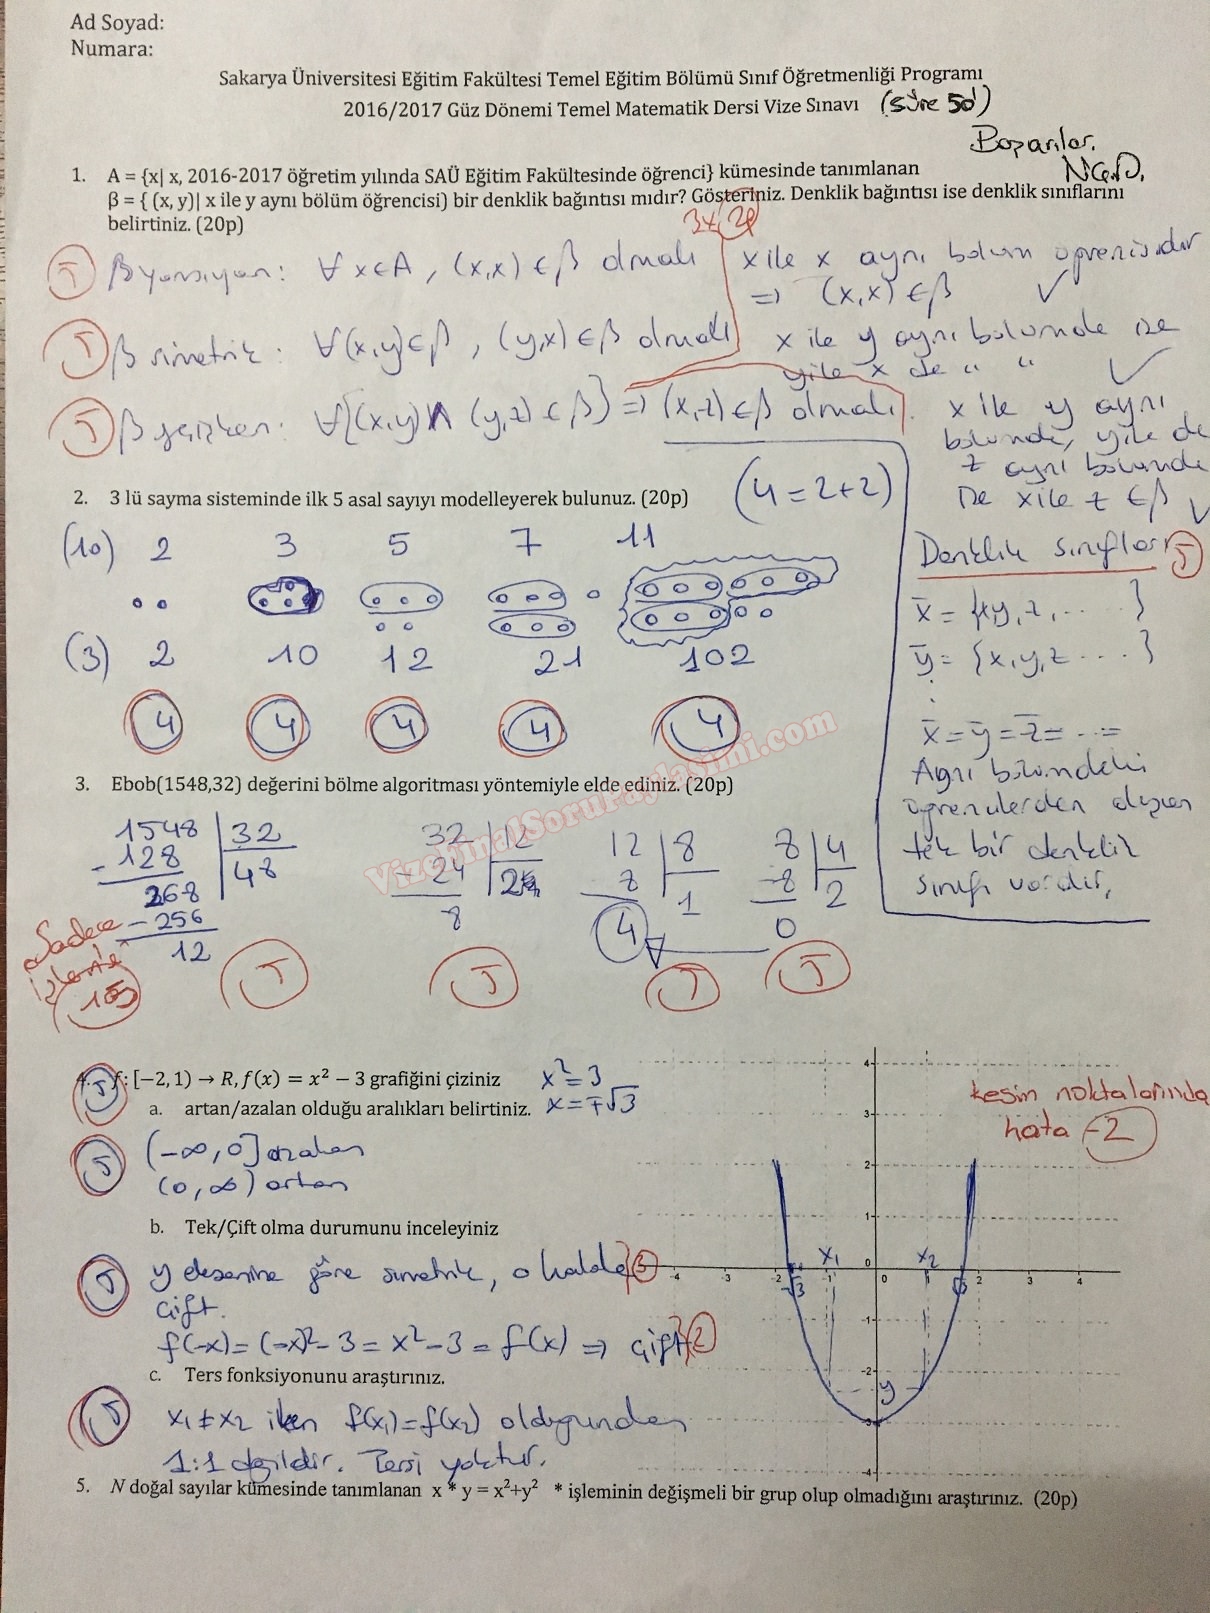 Ad Soyad:
Numara:
Sakarya Üniversitesi Eğitim Fakültesi Temel Eğitim Bölümü Sınıf Öğretmenliği Programı
2016/2017 Güz Dönemi Temel Matematik Dersi Vize Sınavı (süre 50')
Başarılar.
1. A = {x| x, 2016-2017 öğretim yılında SAÜ Eğitim Fakültesinde öğrenci} kümesinde tanımlanan
β = { (x, y)| x ile y aynı bölüm öğrencisi) bir denklik bağıntısı mıdır? Gösteriniz. Denklik bağıntısı ise denklik sınıflarını
belirtiniz. (20p)
5 β yansıyan: ∀x∈A, (x,x) ∈ β olmalı
x ile x aynı bölüm öğrencisidir
=> (x,x) ∈ β ✓
5 β simetrik: ∀(x,y)∈β, (y,x) ∈ β olmalı
x ile y aynı bölümde ise
y ile x de " " ✓
5 β geçişken: ∀[(x,y) ∧ (y,z) ∈ β] => (x,z) ∈ β olmalı.
x ile y aynı
bölümde, y ile de
z aynı bölümde
ise x ile z ∈ β ✓
2. 3 lü sayma sisteminde ilk 5 asal sayıyı modelleyerek bulunuz. (20p) (4=2+2)
(10) 2 3 5 7 11
(3) 2 10 12 21 102
4 4 4 4 4
Denklik sınıfları 5
x̄ = {x,y,z,....}
ȳ = {x,y,z....}
x̄=ȳ=z̄=...=
Aynı bölümdeki
öğrencilerden oluşan
tek bir denklik
sınıfı vardır.
VizeFinalSoruPaylasimi.com
3. Ebob(1548,32) değerini bölme algoritması yöntemiyle elde ediniz. (20p)
1548 32
-128 48
268
-256
12
32
-24
8
12 8
8 1
4
8 4
-8 2
0
Sadece
5 5 5 5
4. f: [−2, 1) → R, f(x) = x² − 3 grafiğini çiziniz x²=3
a. artan/azalan olduğu aralıkları belirtiniz. x=∓√3
5 (-∞,0] azalan
(0,∞) artan
kesim noktalarında
hata -2
b. Tek/Çift olma durumunu inceleyiniz
5 y eksenine göre simetrik, o halde 3
çift.
f(-x)=(-x)²-3=x²-3=f(x) => çift 2
c. Ters fonksiyonunu araştırınız.
5 x₁≠x₂ iken f(x₁)=f(x₂) olduğundan
1:1 değildir. Tersi yoktur.
4
3
2
1
0
-4 -3 -2 -1 0 2 3 4
-√3 x₁ x₂ √3
-1
-2
y
-3
-4
5. N doğal sayılar kümesinde tanımlanan x * y = x²+y² * işleminin değişmeli bir grup olup olmadığını araştırınız. (20p)